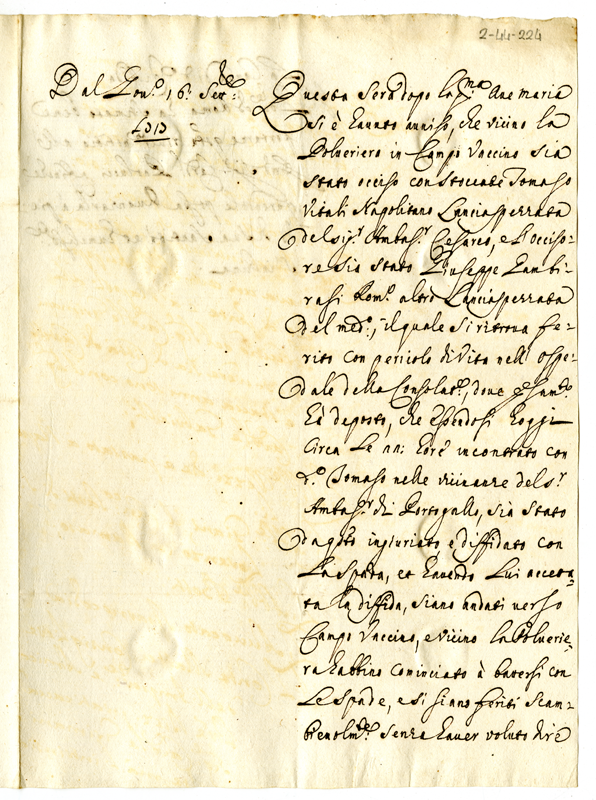 2-44-224
Dal Gov.re 16. 7bre
1313
Questa sera dopo l'Ave Maria
si è havuto auuiso, che vicino la
Polueriera in Campo Vaccino sia
stato occiso con stoccade Tomaso
Vitali Napolitano Lanciasperzata
del sig.r Ambas.r Cesareo, e l'occiso-
re sia stato Giuseppe Gambi-
rasi Rom.o altro Lanciasperzata
del med.o, il quale si ritroua fe-
rito con pericolo di Vita nell' ospe-
dale della Consolat.e, doue
hà deposto, che essendosi hoggi
circa le hore incontrato con
d.o Tomaso nelle vicinanze del s.r
Ambas.r di Portogallo, sia stato
da q.sto ingiuriato e diffidato con
la spada, et hauendo lui accetta-
ta la diffida, siano andati verso
Campo Vaccino, e vicino la Poluerie-
ra habbino cominciato à battersi con
le spade, e si siano feriti scam-
bieuolm.te senza hauer voluto dire